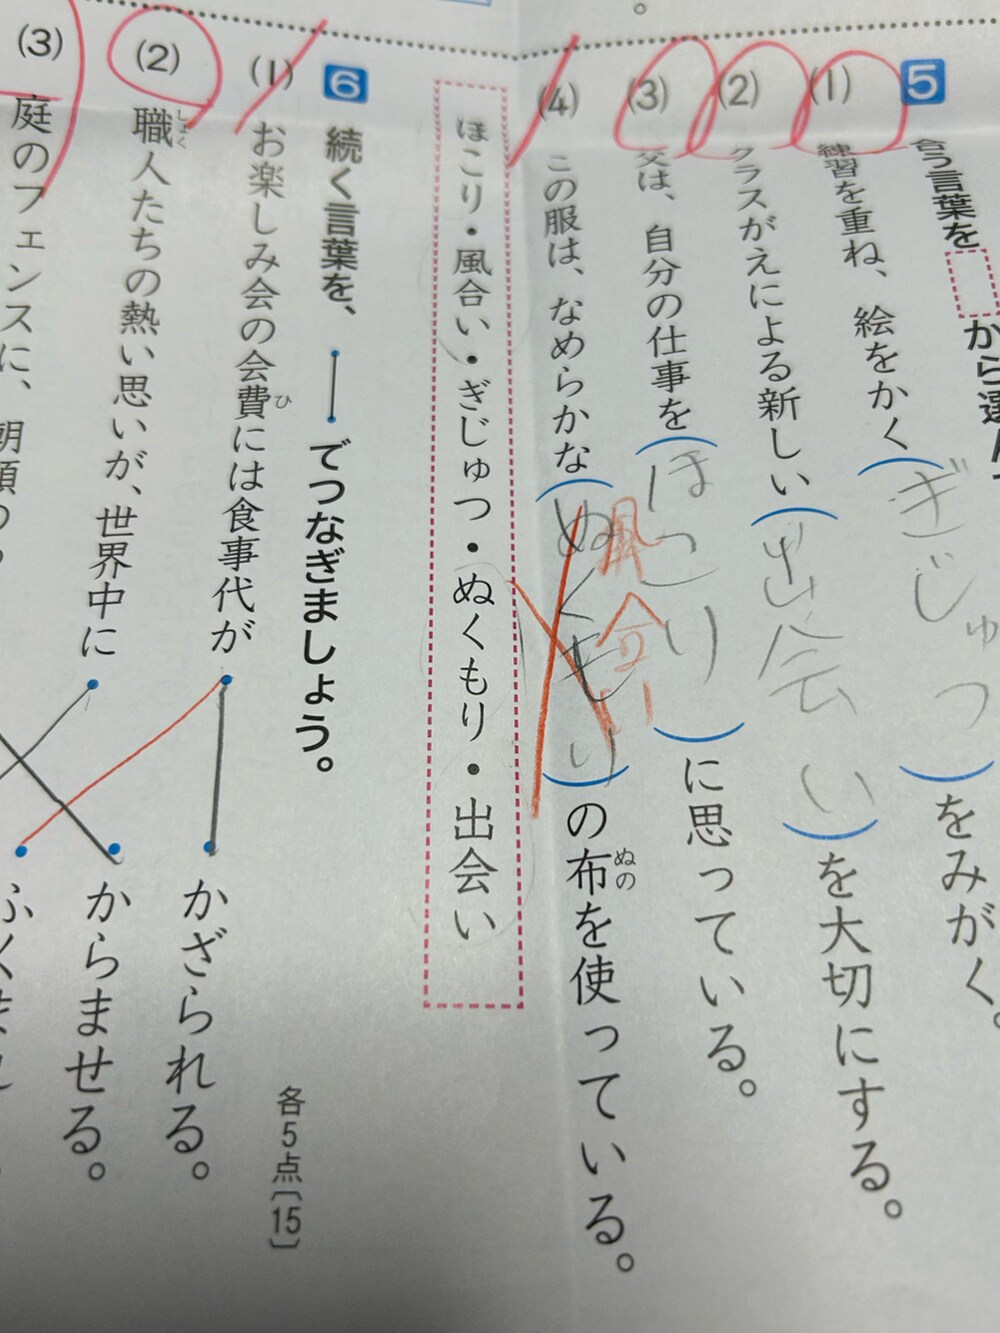 5
合う言葉を から選んで
(1) 練習を重ね、絵をかく(ぎじゅつ)をみがく。
(2) クラスがえによる新しい(出会い)を大切にする。
(3) 父は、自分の仕事を(ほこり)に思っている。
(4) この服は、なめらかな(ぬくもり)の布を使っている。
ぬの
風合い
ほこり・風合い・ぎじゅつ・ぬくもり・出会い
6 続く言葉を、 でつなぎましょう。
各5点〔15〕
(1) お楽しみ会の会費には食事代が
ひ
かざられる。
(2) 職人たちの熱い思いが、世界中に
しょく
からませる。
(3) 庭のフェンスに、朝顔の